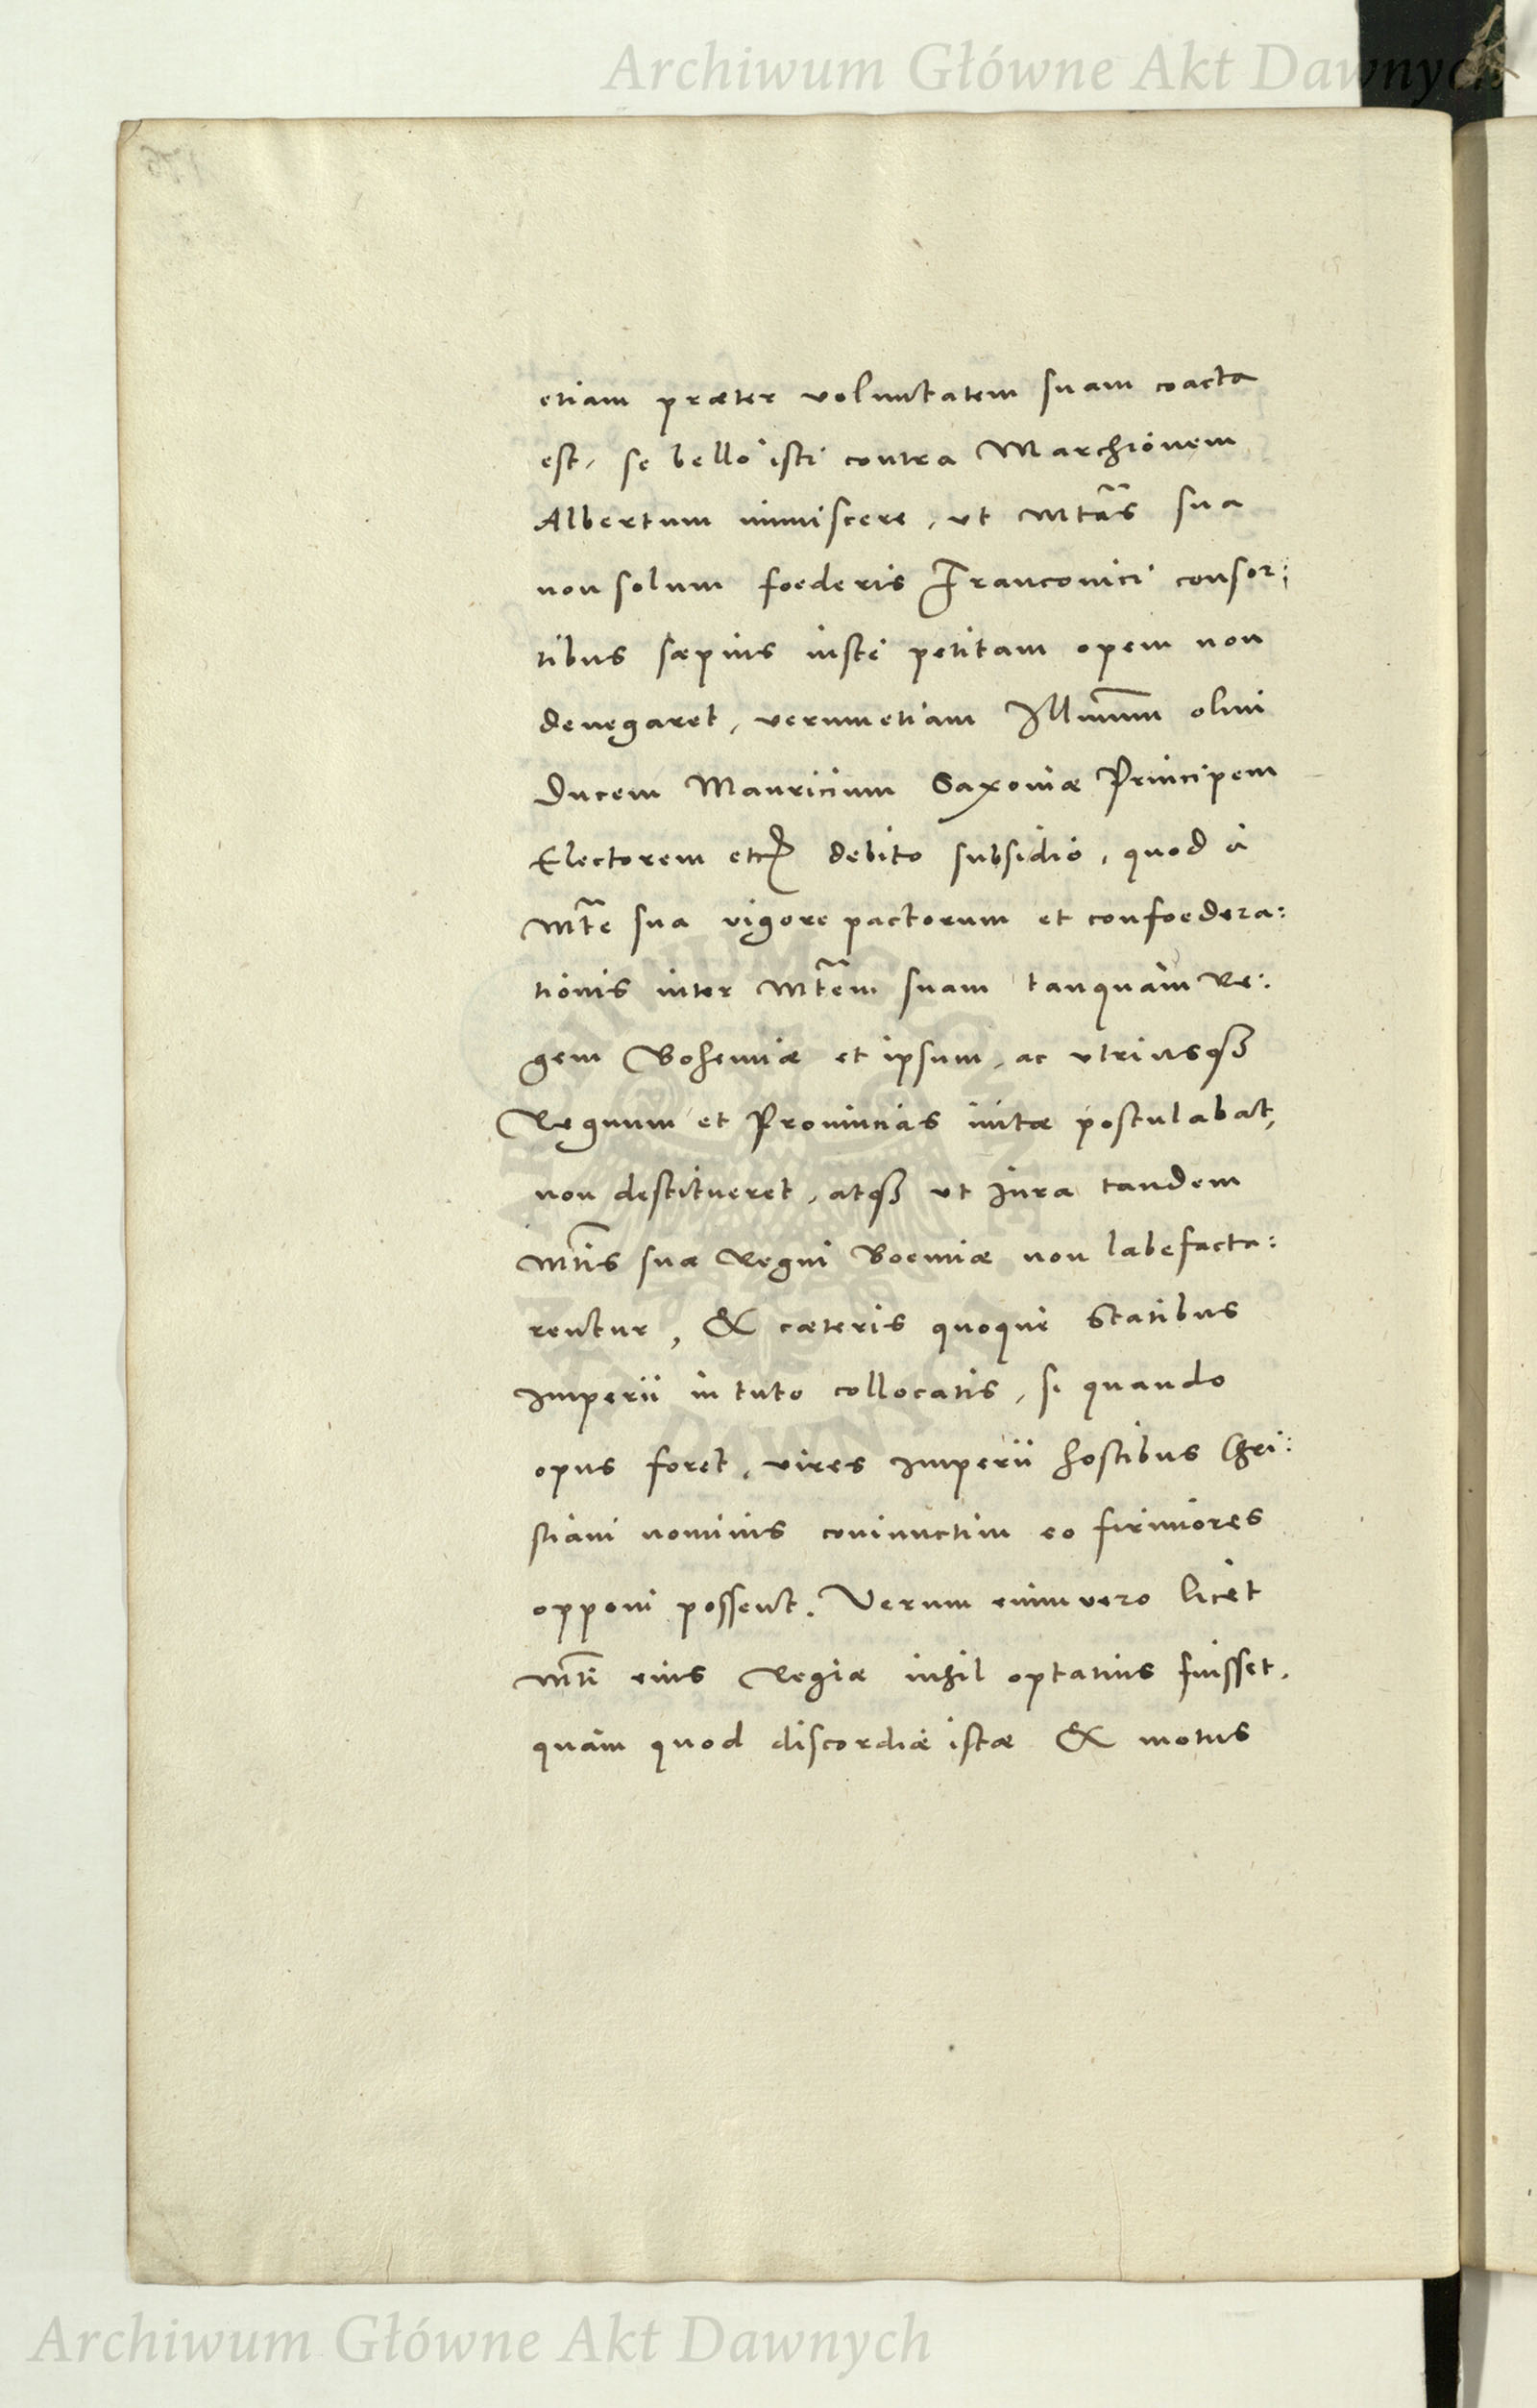 Archiwum Główne Akt Dawnych
etiam præter voluntatem suam coacta
est, se bello isti contra Marchionem
Albertum immiscere, ut Mtas sua
non solum foederis Franconici consor:
tibus sæpius iuste petitam opem non
denegaret, verumetiam Illmum olim
Ducem Mauricium Saxoniæ Principem
Electorem etc debito subsidio, quod à
Mte sua vigore pactorum et confoedera:
tionis inter Mtem suam tanquam Re:
gem Bohemiæ et ipsum, ac utriusq3
Regnum et Prouincias initæ postulabat,
non destitueret, atq3 ut Iura tandem
Mtis suæ Regni Boemiæ non labefacta:
rentur, & cæteris quoque Statibus
Imperii in tuto collocatis, si quando
opus foret, vires Imperii hostibus Chri:
stiani nominis coniunctim eo firmiores
opponi possent. Verum enimvero licet
Mti eius Regiæ nihil optatius fuisset,
quàm quod discordiæ istæ & motus
ARCHIWUM GŁÓWNE AKT DAWNYCH
Archiwum Główne Akt Dawnych